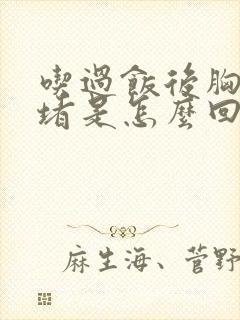 喫過飯後胸
堵是怎麼回
麻生海、菅野